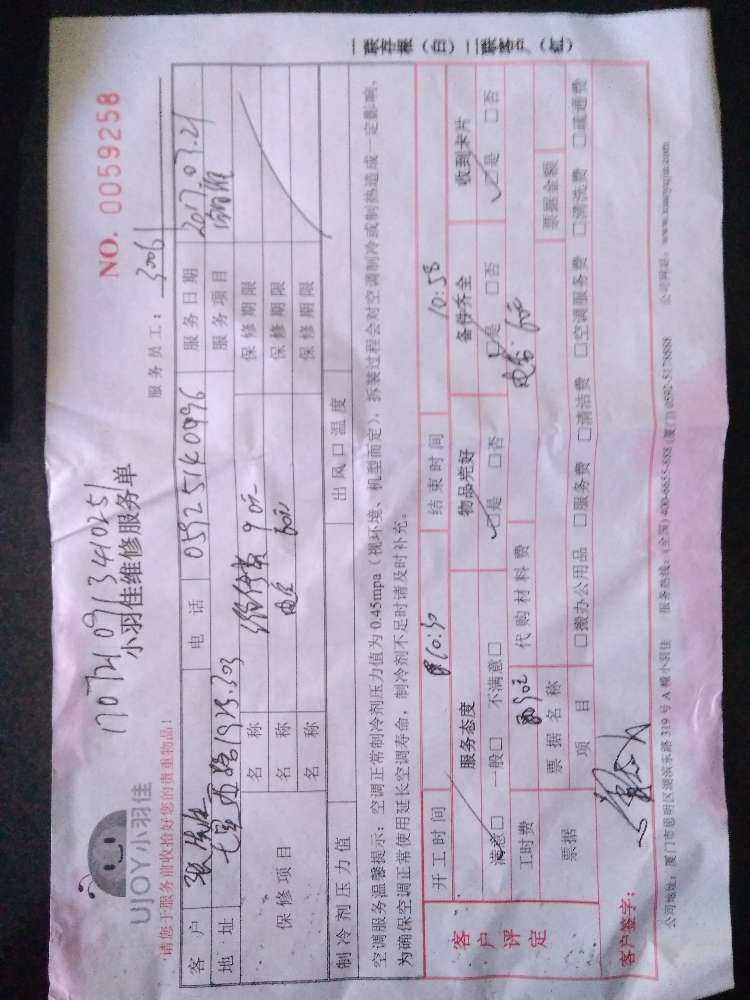 UJOY小羽佳
小羽佳维修服务单
NO. 0059258
请您于服务前收拾好您的贵重物品!
服务员工:
客户 电话 05925140996 服务日期 2017.03.21
地址 服务项目
保修项目 名称 90元 保修期限
名称 60元 保修期限
名称 保修期限
制冷剂压力值 出风口温度
空调服务温馨提示:空调正常制冷剂压力值为 0.45mpa(视环境、机型而定),拆装过程会对空调制冷或制热造成一定影响,
为确保空调正常使用延长空调寿命,制冷剂不足时请及时补充。
客户评定
开工时间 10:30 结束时间 10:58
服务态度 物品完好 备件齐全 收到卡片
满意□ 一般□ 不满意□ □是 □否 □是 □否 □是 □否
工时费 90元 代购材料费 60元
票据 票据名称 票据金额
项目 □搬办公用品 □服务费 □清洁费 □空调服务费 □清洗费 □疏通费
客户签字:
公司地址:厦门市思明区湖滨东路 319 号 A 幢小羽佳 服务热线:(全国)400-6655-888 (厦门)0592-5178888 公司网站:www.xiaoyujia.com
一联存根(白)二联客户(红)